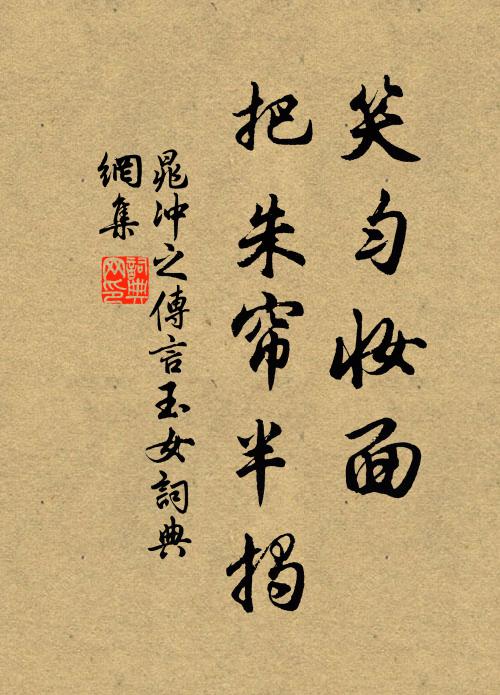 笑匀妆面
把朱帘半揭
晁冲之傳言玉女詞典
網集
詞典網印